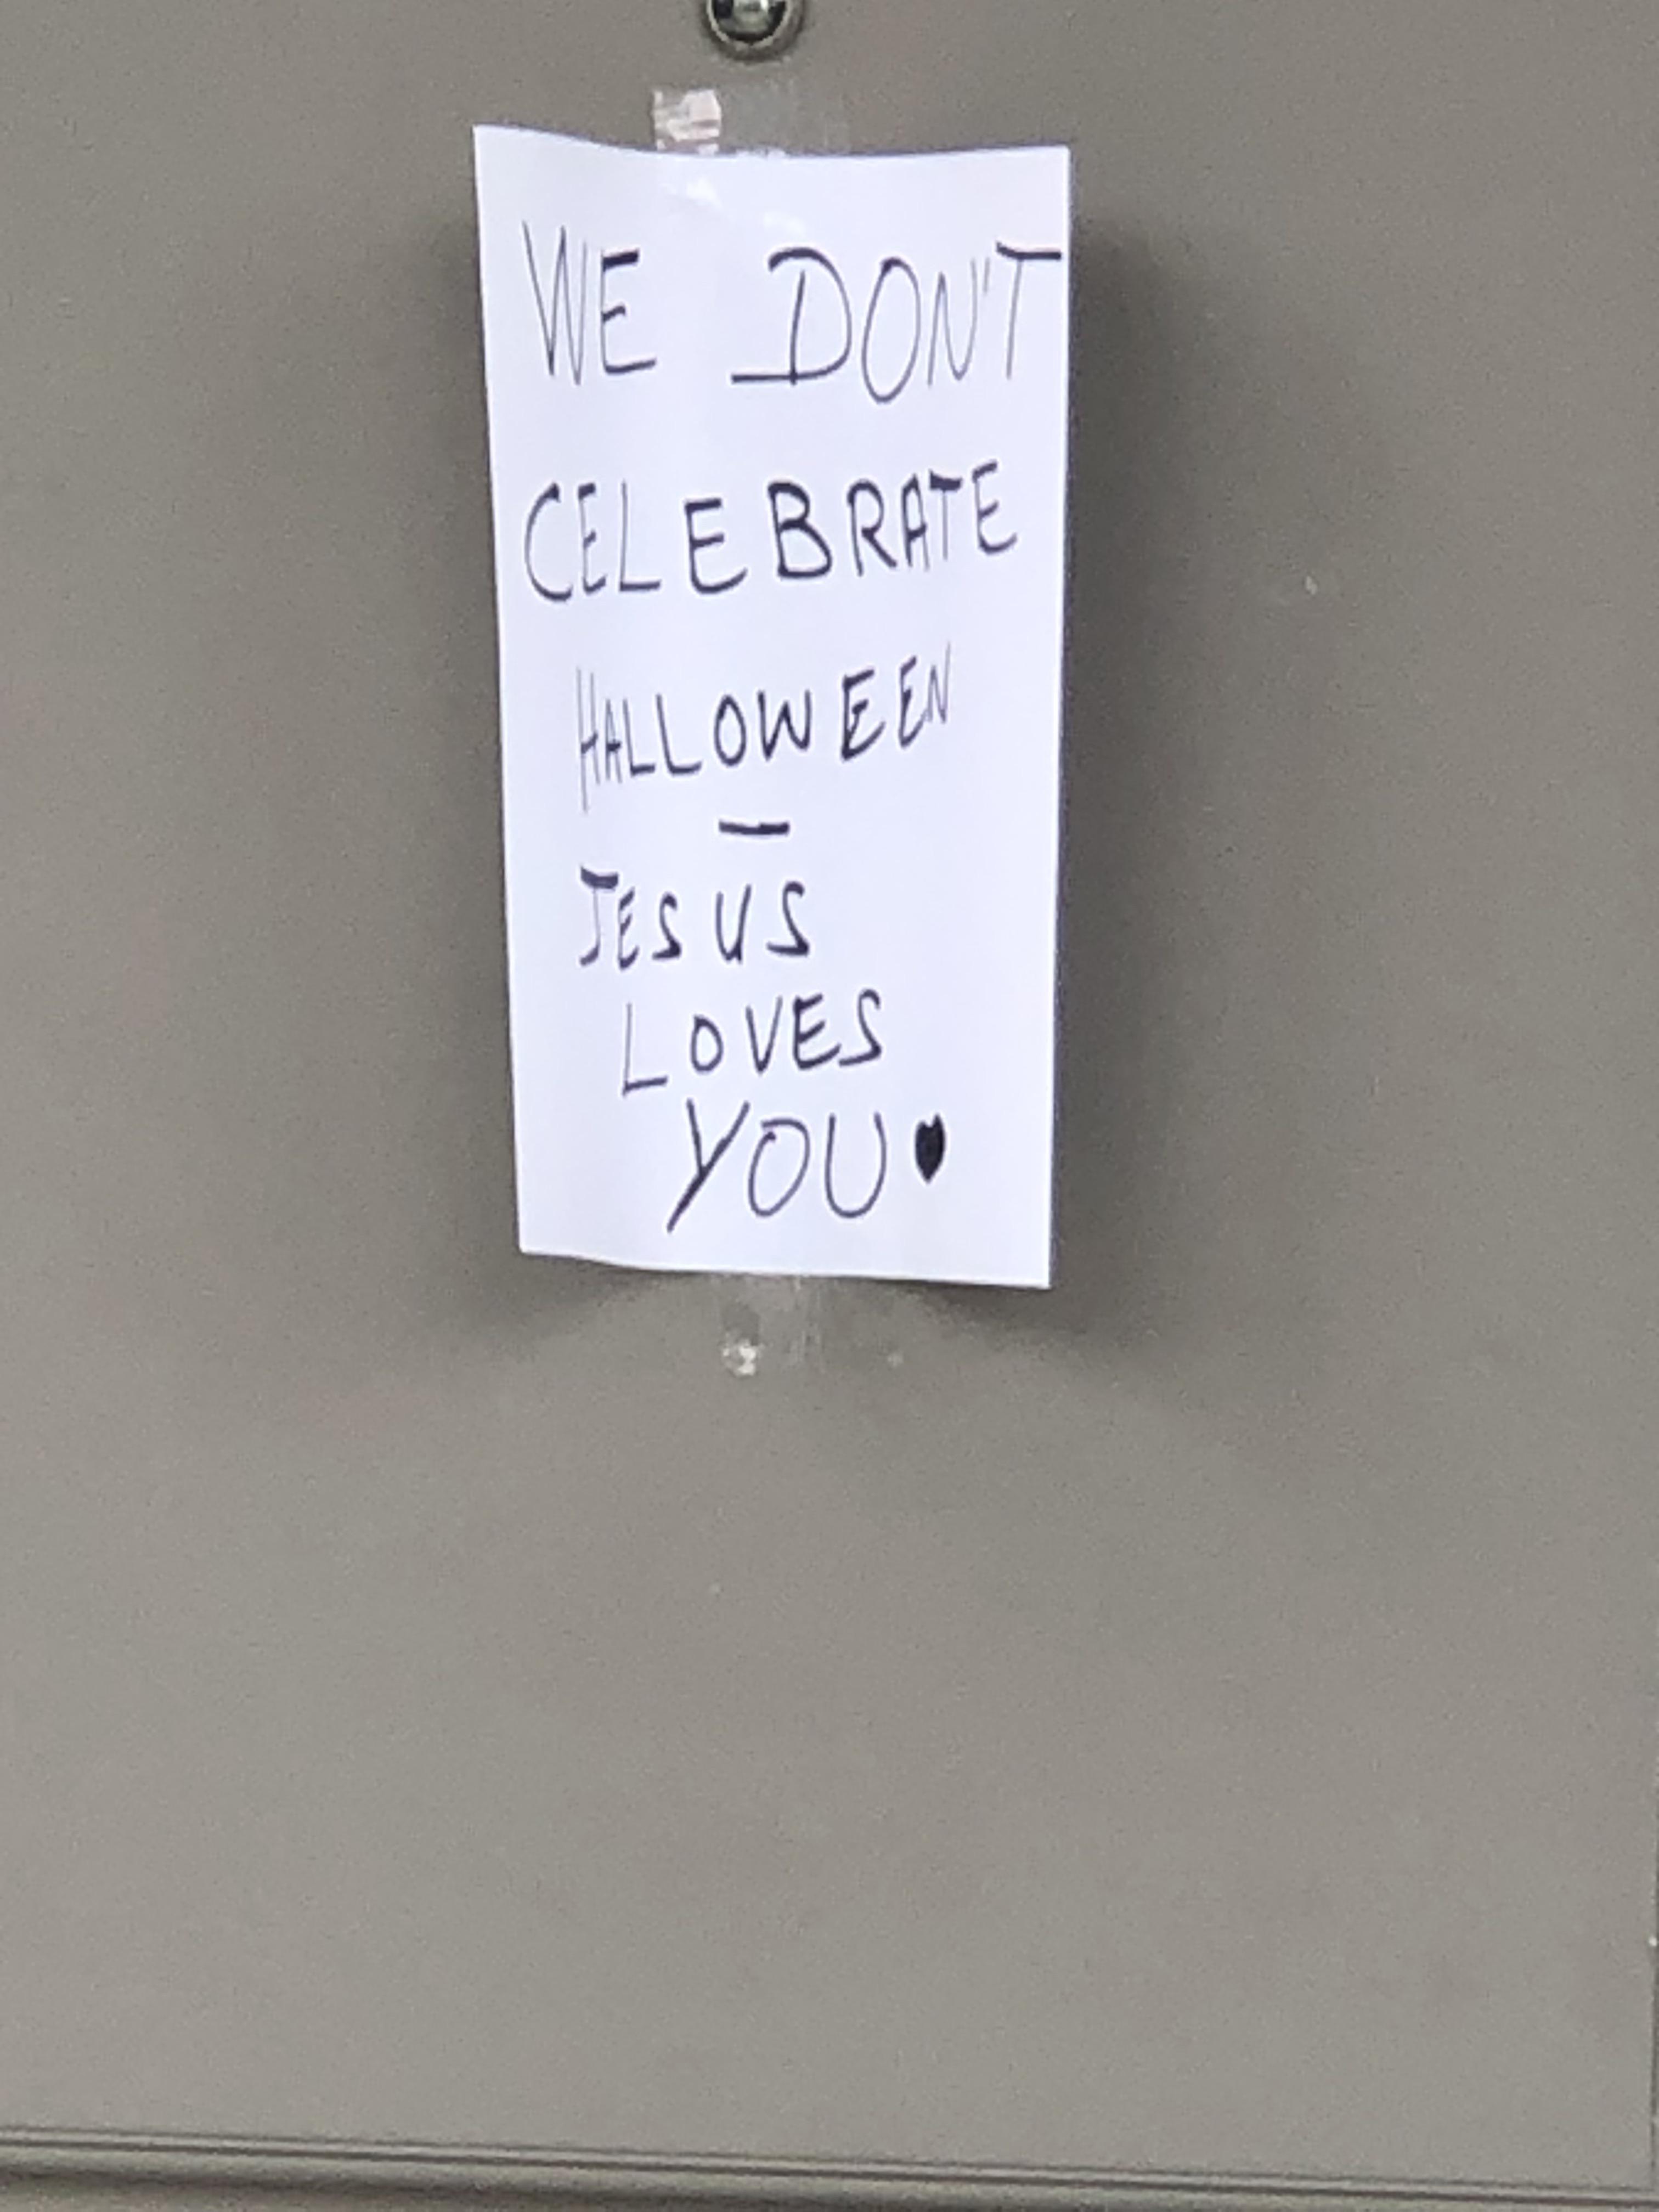 WE DON'T
CELEBRATE
HALLOWEEN
—
JESUS
LOVES
YOU♥